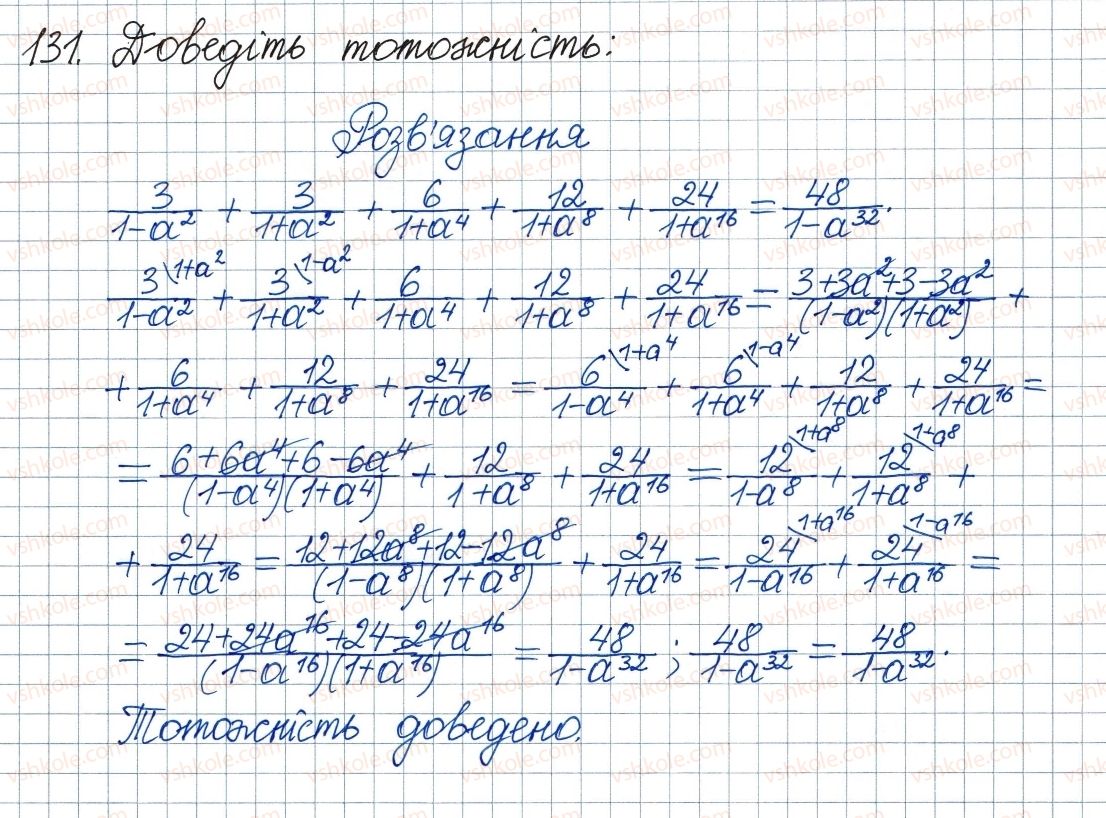 131. Доведіть тотожність:
Розв'язання
3/(1-a²) + 3/(1+a²) + 6/(1+a⁴) + 12/(1+a⁸) + 24/(1+a¹⁶) = 48/(1-a³²).
3\1+a²/(1-a²) + 3\1-a²/(1+a²) + 6/(1+a⁴) + 12/(1+a⁸) + 24/(1+a¹⁶) = (3+3a²+3-3a²)/((1-a²)(1+a²)) +
+ 6/(1+a⁴) + 12/(1+a⁸) + 24/(1+a¹⁶) = 6\1+a⁴/(1-a⁴) + 6\1-a⁴/(1+a⁴) + 12/(1+a⁸) + 24/(1+a¹⁶) =
= (6+6a⁴+6-6a⁴)/((1-a⁴)(1+a⁴)) + 12/(1+a⁸) + 24/(1+a¹⁶) = 12\1+a⁸/(1-a⁸) + 12\1-a⁸/(1+a⁸) +
+ 24/(1+a¹⁶) = (12+12a⁸+12-12a⁸)/((1-a⁸)(1+a⁸)) + 24/(1+a¹⁶) = 24\1+a¹⁶/(1-a¹⁶) + 24\1-a¹⁶/(1+a¹⁶) =
= (24+24a¹⁶+24-24a¹⁶)/((1-a¹⁶)(1+a¹⁶)) = 48/(1-a³²); 48/(1-a³²) = 48/(1-a³²).
Тотожність доведено.